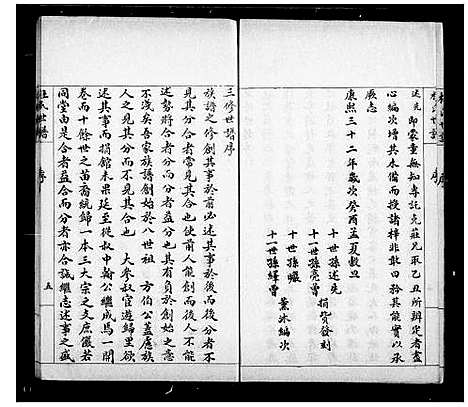 述先即蒙童無知專託先莊兄取乙丑所辦定者盡
心編次增其未備而授諸梓非敢曰矜其能實以承
厥志
康熙三十二年歲次癸酉孟夏穀旦
十世孫述先
十一世孫亮曾 捐貲發刻
十世孫曦
十一世孫繹曾 薰沐編次
三修世譜序
族譜之修創其事於前必述其事於後而後合者不
見其分分者常見其合也使前人能創而後人不能
述勢將合者分而分者益分也其有負於創始之意
不淺矣吾家族譜創始於八世祖 方伯公蓋慮族
人之見其分而不見其合也 大參叔宦遊歸里欲
述其事而捐館未果延至從叔中翰公繼成焉一開
卷而十餘世之苗裔統歸一本三大宗之支庶儼若
同堂由是合者益合而分者亦合誠繼志述事之盛
杜氏世譜
序
五